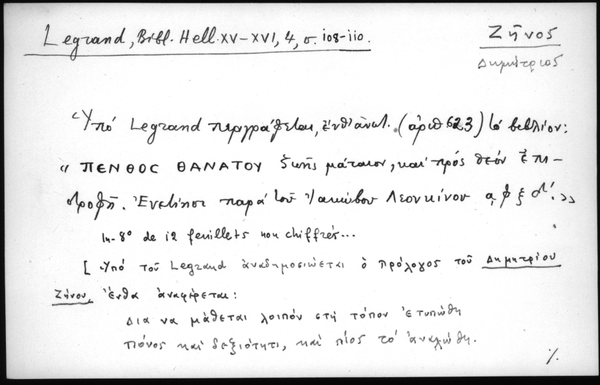 Legrand, Bibl. Hell. XV-XVI, 4, σ. 108-110.
Ζῆνος
Δημήτριος
Ὑπό Legrand περιγράφεται, ἔνθ' ἀνωτ. (ἀριθ 623) τό βιβλίον:
« ΠΕΝΘΟΣ ΘΑΝΑΤΟΥ ζωῆς μάταιον, καί πρός θεόν ἐπι-
στροφή. Ἐνετίησι παρά τοῦ Ἰακώβου Λεονκίνου α φ ξ δ'. »
In-8° de 12 feuillets non chiffrés...
[ Ὑπό τοῦ Legrand ἀναδημοσιεύεται ὁ πρόλογος τοῦ Δημητρίου
Ζήνου, ἔνθα ἀναφέρεται:
Δια να μάθεται λοιπόν στή τόπον ἐτυπώθη
πόνος καί δεξιότητι, καί πίος τό ἀναλώθη.
./.